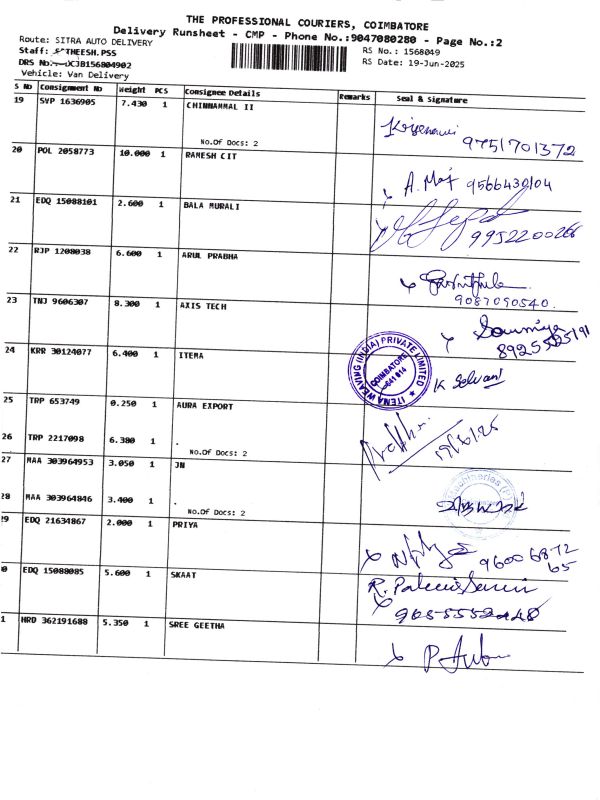 THE PROFESSIONAL COURIERS, COIMBATORE
Delivery Runsheet - CMP - Phone No.:9047080280 - Page No.:2
Route: SITRA AUTO DELIVERY
RS No.: 1568049
RS Date: 19-Jun-2025
Vehicle: Van Delivery
S No Consignment No Weight PCS Consignee Details Remarks Seal & Signature
19 SVP 1636905 7.430 1 CHINNAMMAL II
No.Of Docs: 2
9751701372
20 POL 2058773 10.000 1 RAMESH CIT
A. Maj 9566430104
21 EDQ 15088101 2.600 1 BALA MURALI
9952200266
22 RJP 1208038 6.600 1 ARUL PRABHA
9087090540.
23 TNJ 9606307 8.300 1 AXIS TECH
Soumiya
24 KRR 30124077 6.400 1 ITEMA
ITEMA WEAVING (INDIA) PRIVATE LIMITED
COIMBATORE
641 014
K Selvam
25 TRP 653749 0.250 1 AURA EXPORT
19/6/25
26 TRP 2217098 6.380 1 .
No.Of Docs: 2
27 MAA 303964953 3.050 1 JN
28 MAA 303964846 3.400 1 .
No.Of Docs: 2
29 EDQ 21634867 2.000 1 PRIYA
96006872
65
30 EDQ 15088085 5.600 1 SKAAT
31 HRD 362191688 5.350 1 SREE GEETHA